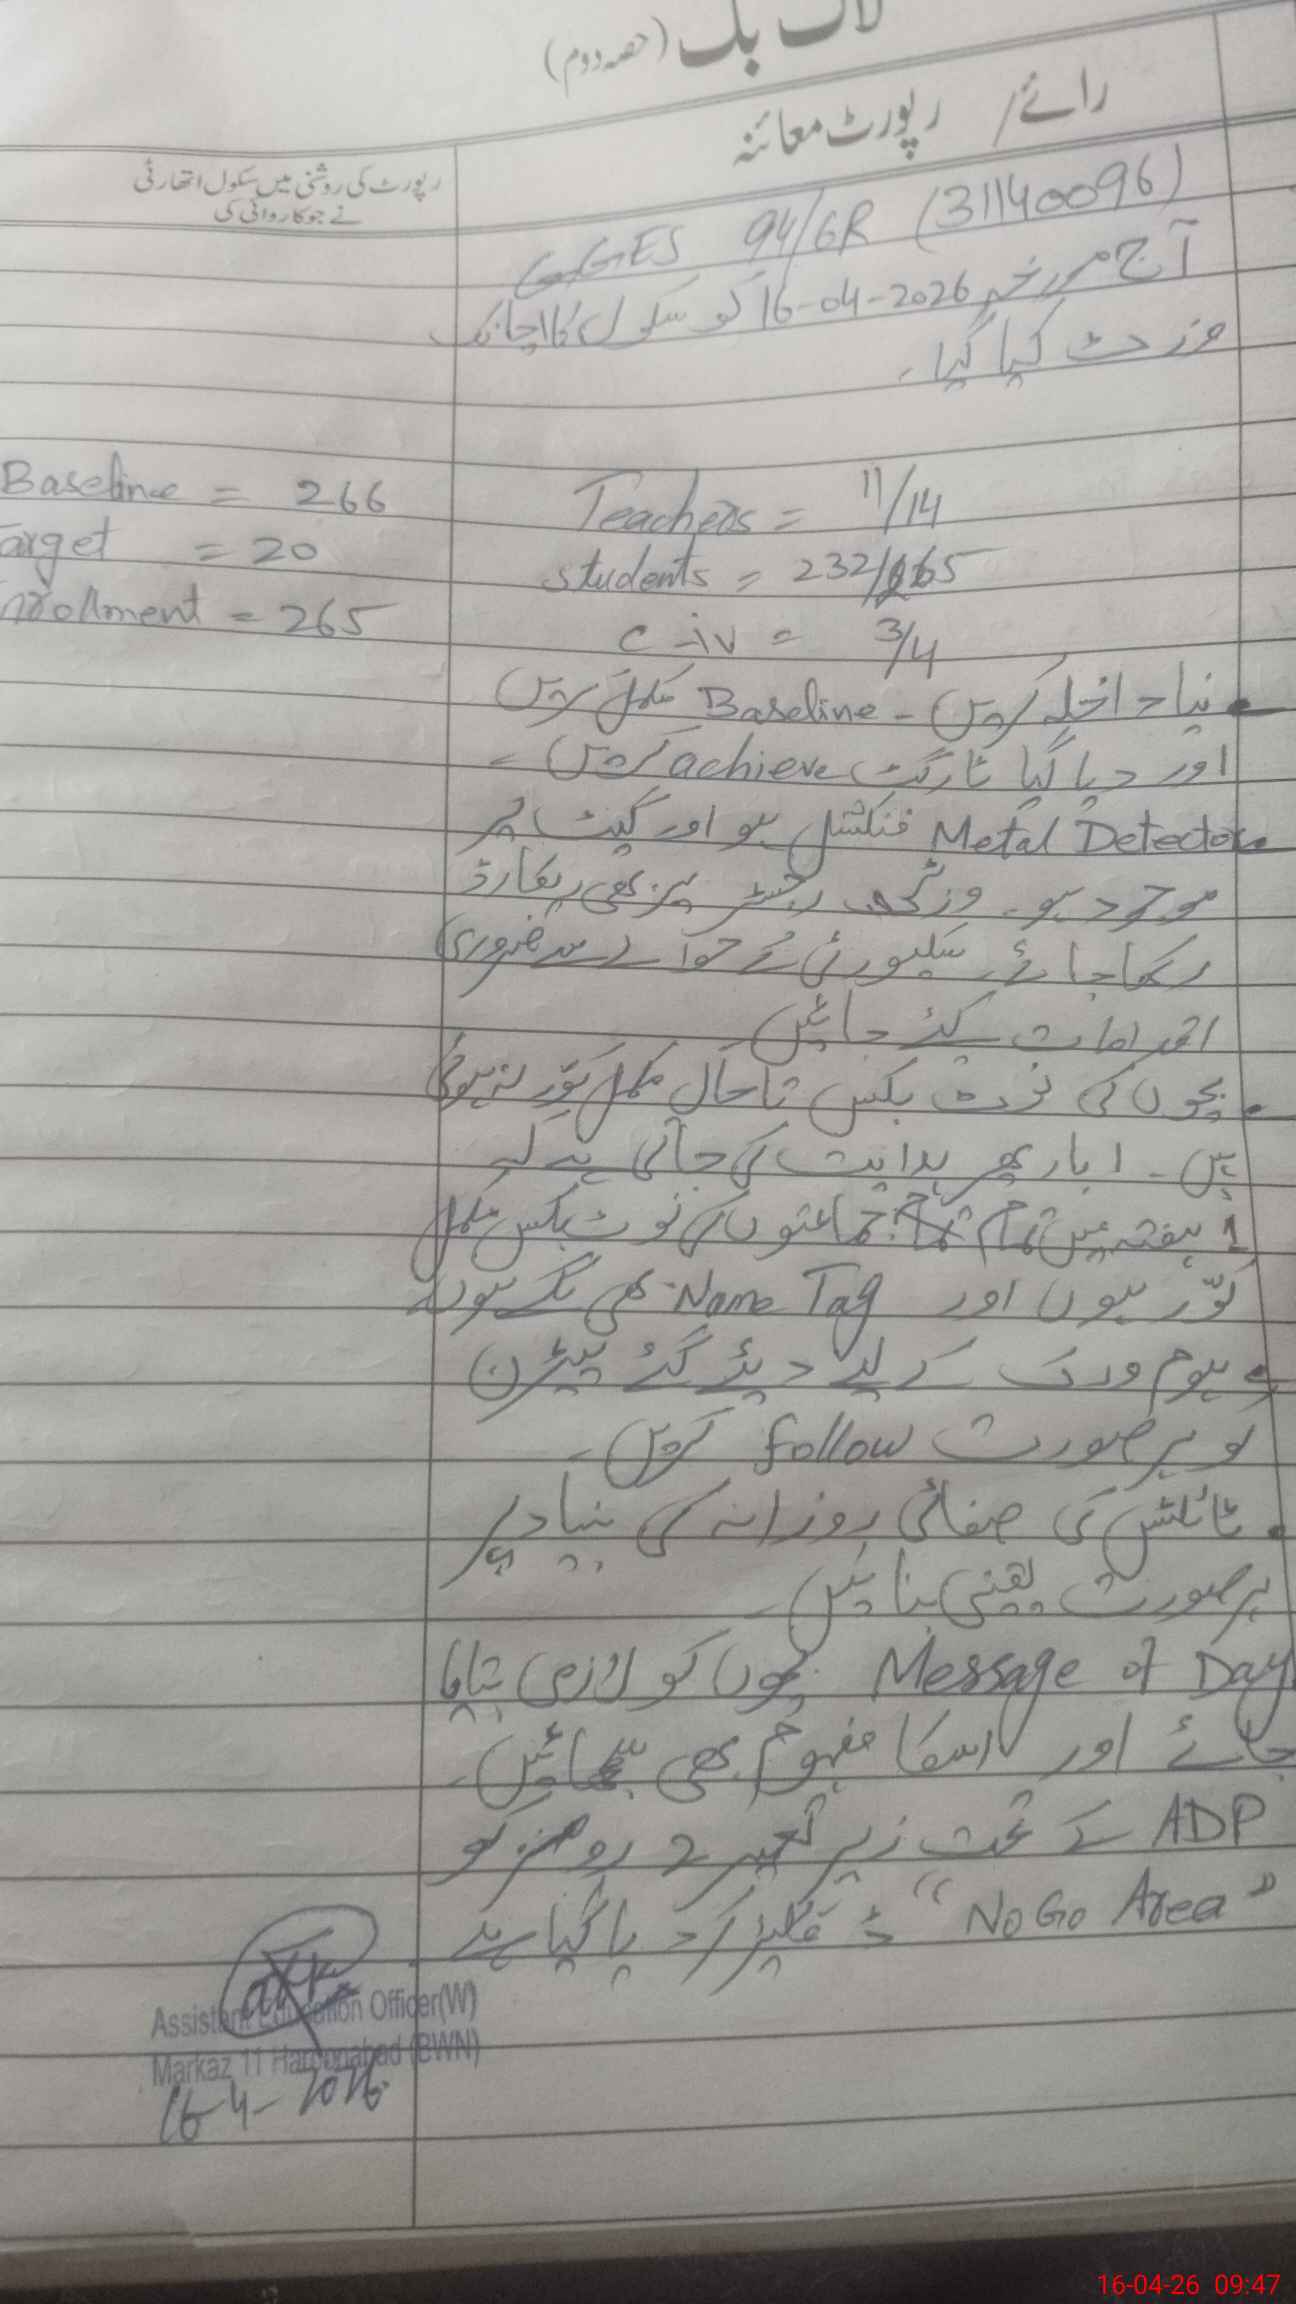 لاگ بک (حصہ دوم)
رائے / رپورٹ معائنہ
رپورٹ کی روشنی میں سکول اتھارٹی
نے جو کاروائی کی
GGES 94/6R (31140096)
آج مورخہ 16-04-2026 کو سکول کا اچانک
وزٹ کیا گیا۔
Teachers = 11/14
students = 232/265
C-iv = 3/4
Baseline = 266
Target = 20
Enrollment = 265
• نیا داخلہ کریں - Baseline مکمل کریں
اور دیا گیا ٹارگٹ achieve کریں -
• Metal Detector فنکشنل ہو اور گیٹ پر
موجود ہو۔ وزٹنگ رجسٹر پر بھی ریکارڈ
رکھا جائے۔ سکیورٹی کے حوالے سے ضروری
اقدامات کئے جائیں۔
• بچوں کی نوٹ بکس تاحال مکمل کور نہ ہوئی
ہیں۔ ابار پھر ہدایت کی جاتی ہے کہ
1 ہفتہ میں تمام جماعتوں کی نوٹ بکس مکمل
کوّر ہوں اور Name Tag بھی لگے ہوں۔
• ہوم ورک کے لیے دیئے گئے پیٹرن
کو ہر صورت follow کریں۔
• ٹائلٹس کی صفائی روزانہ کی بنیاد پر
ہر صورت یقینی بنائیں۔
Message of Day بچوں کو لازمی بتایا
جائے اور اسکا مفہوم بھی سمجھائیں۔
ADP کے تحت زیر تعمیر 2 رومز کو
"No Go Area" ڈکلیئر کر دیا گیا ہے
Assistant Education Officer(W)
Markaz 11 Haroonabad (BWN)
16-4-2026
16-04-26 09:47